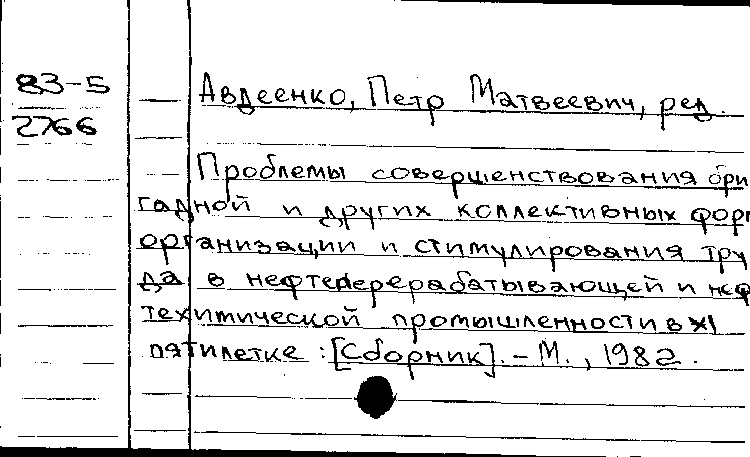 83-5
2766
Авдеенко, Петр Матвеевич, ред.
Проблемы совершенствования бри
гадной и других коллективных фор
организации и стимулирования тру
да в нефтеперерабатывающей и неф
техимической промышленности в XI
пятилетке : [Сборник]. - М., 1982.